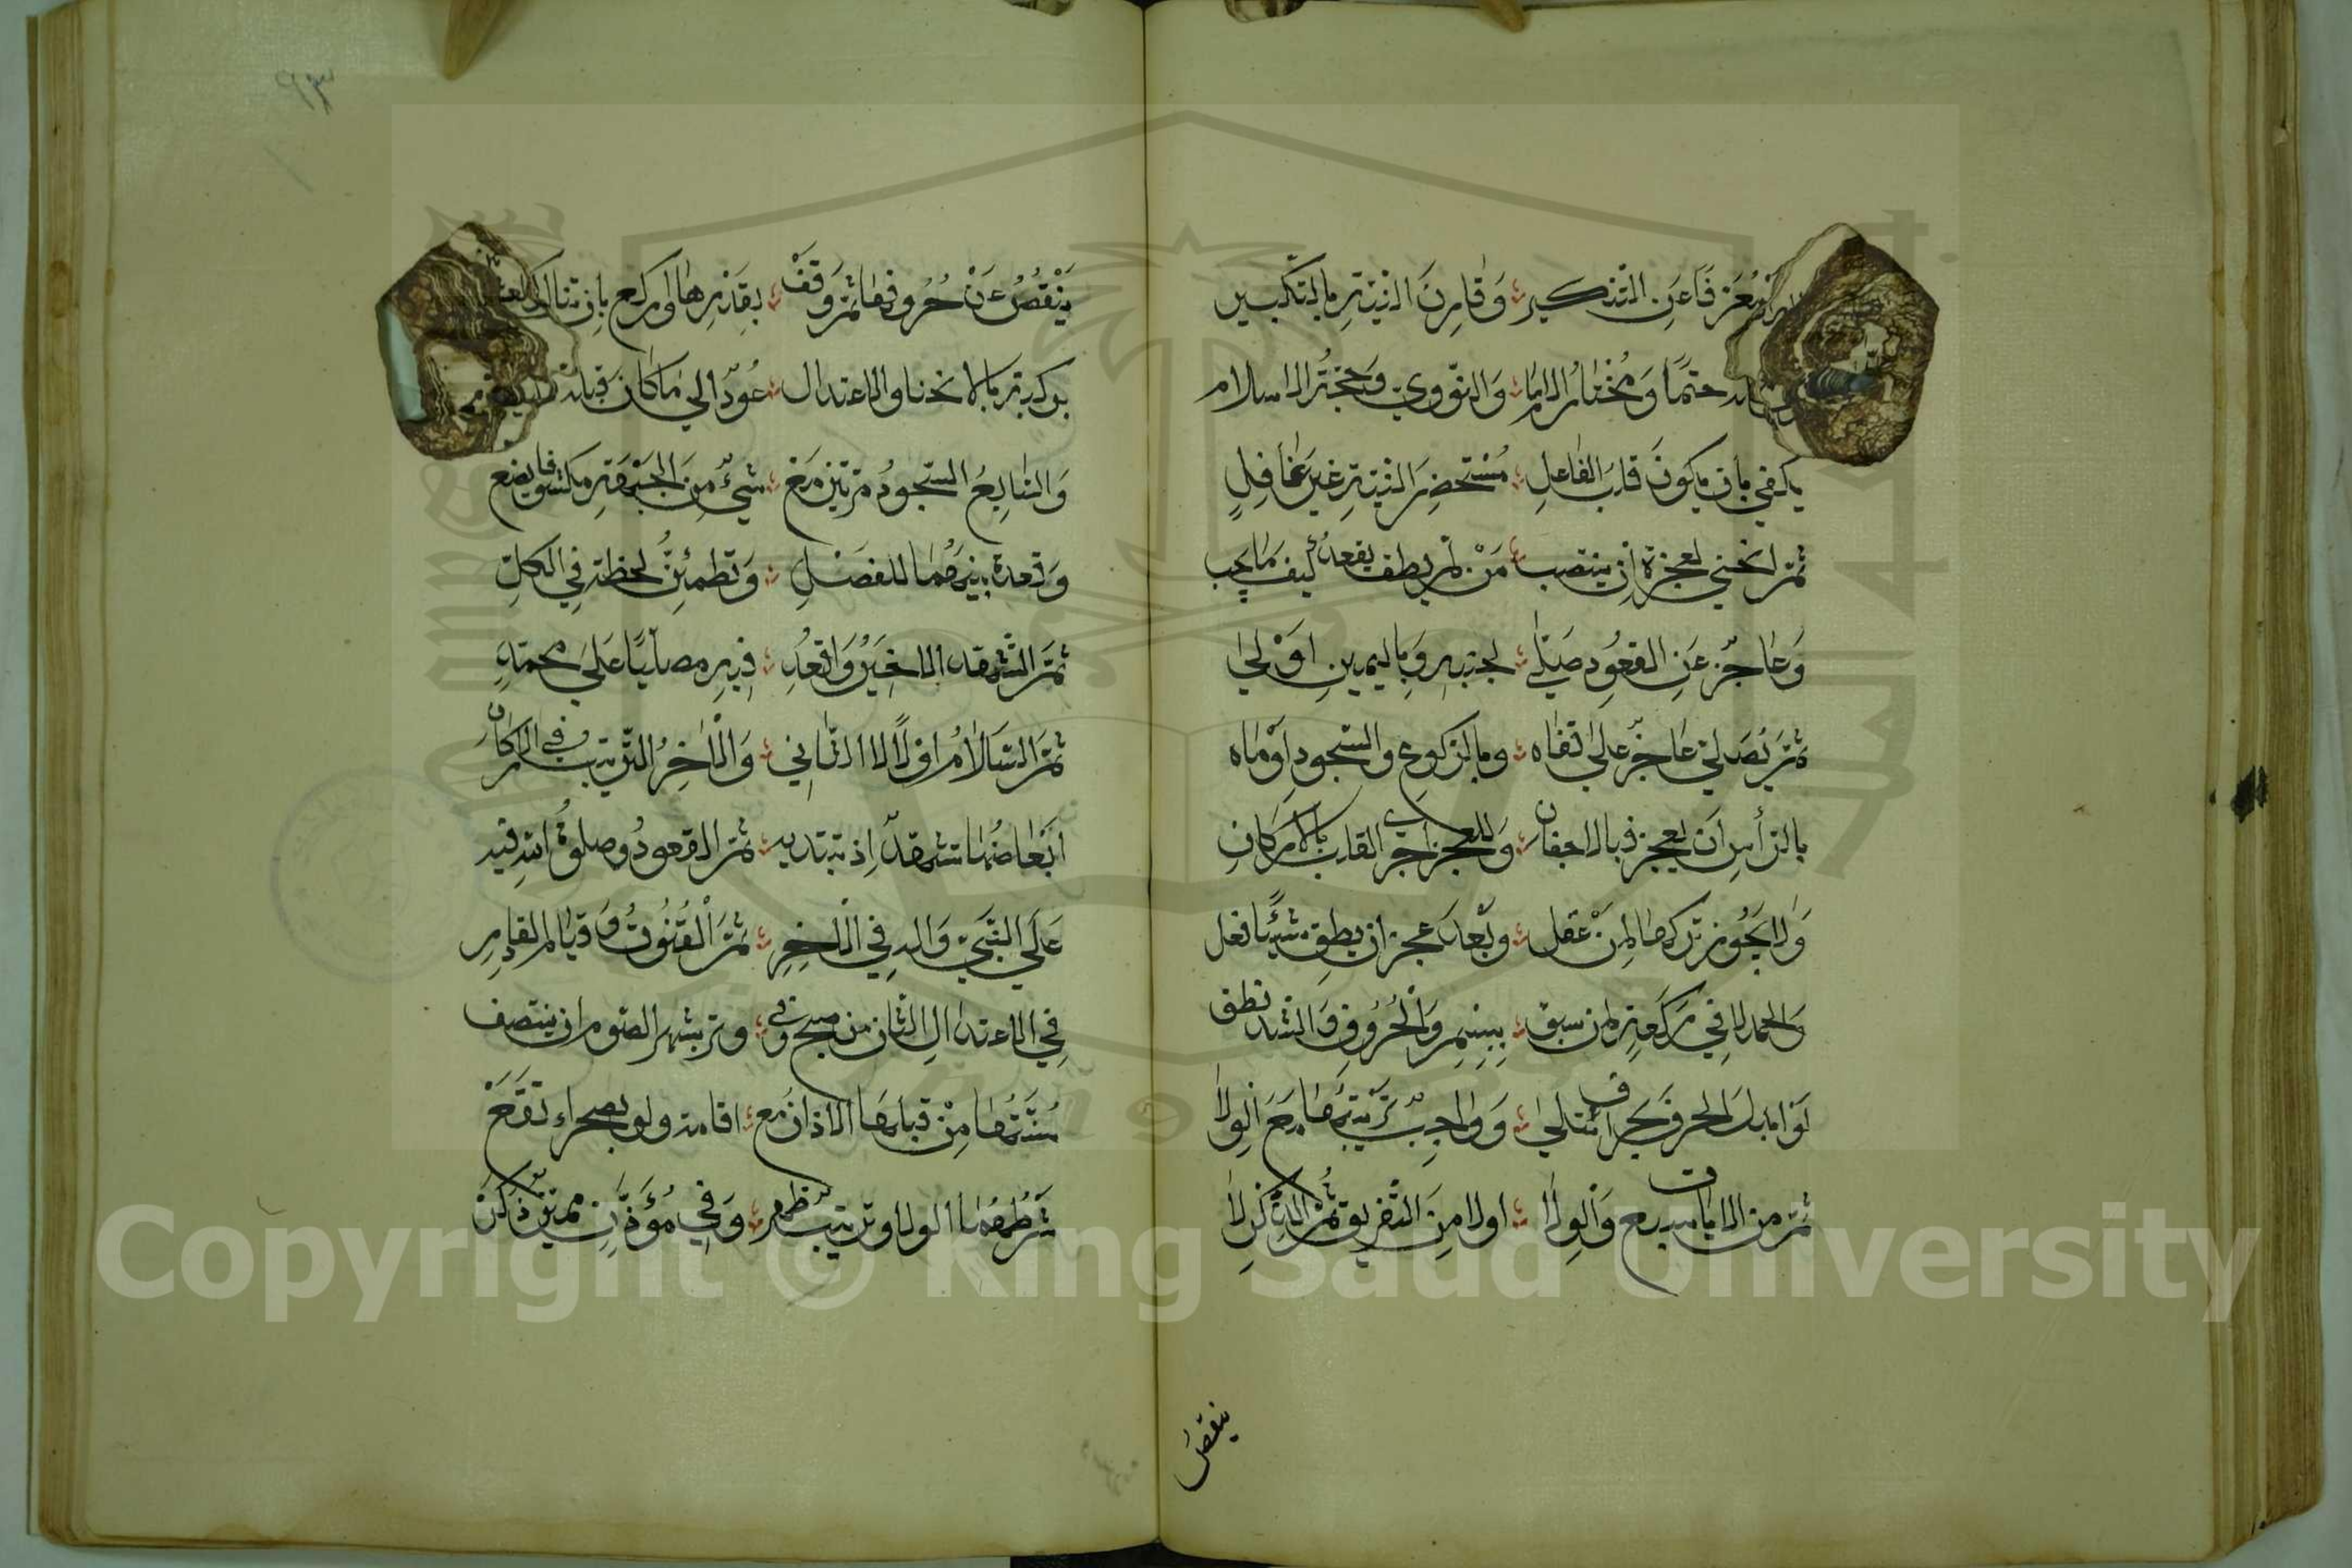 معرفا عن التنكير وقارن النية بالتكبير
حتما ومختار الامام والنووي وحجة الاسلام
يكفي بأن يكون قلب الفاعل مستحضر النية غير غافل
ثم انحني لعجزه أن ينتصب من لم يطق يقعد كيف ما يجب
وعاجز عن القعود صلى لجنبه وباليمين اولى
ثم يصلي عاجز على قفاه وبالركوع والسجود اوماه
بالرأس ان يعجز فبالاجفان وللعجز اجرى القلب بالاركان
ولا يجوز تركها لمن عقل وبعد عجز ان يطق شيئا فعل
والحمد لا في ركعة لمن سبق ببسم والحروف والشد نطق
لو ابدل الحرف بحرف ابطلا وواجب ترتيبها مع الولا
ثم من الايات سبع والولا اولا من التفريق ثم الذكر لا
ينقص
ينقص عن حروفها ثم وقف بقدرها واركع بان تنال الكف
بركبة بالانحنا والاعتدال عود الى ما كان قبله
والسابع السجود مرتين مع شيء من الجبهة مكشوفا يضع
وقعدة بينهما للفصل وتطمئن لحظة في الكل
ثم التشهد الاخير واقعد فيه مصليا على محمد
ثم السلام اولا لا الثاني والاخر الترتيب في الاركان
ابعاضها تشهد اذ تبتديه ثم القعود وصلوة الله فيه
على النبي وآله في الاخر ثم القنوت وقيام القادر
في الاعتدال الثان من صبح وفي وتر بشهر الصوم ان ينتصف
سنتها من قبلها الاذان مع اقامة ولو بصحراء تقع
شرطهما الولا وترتيب ظهر وفي مؤذن مميز ذكر
Copyright © King Saud University